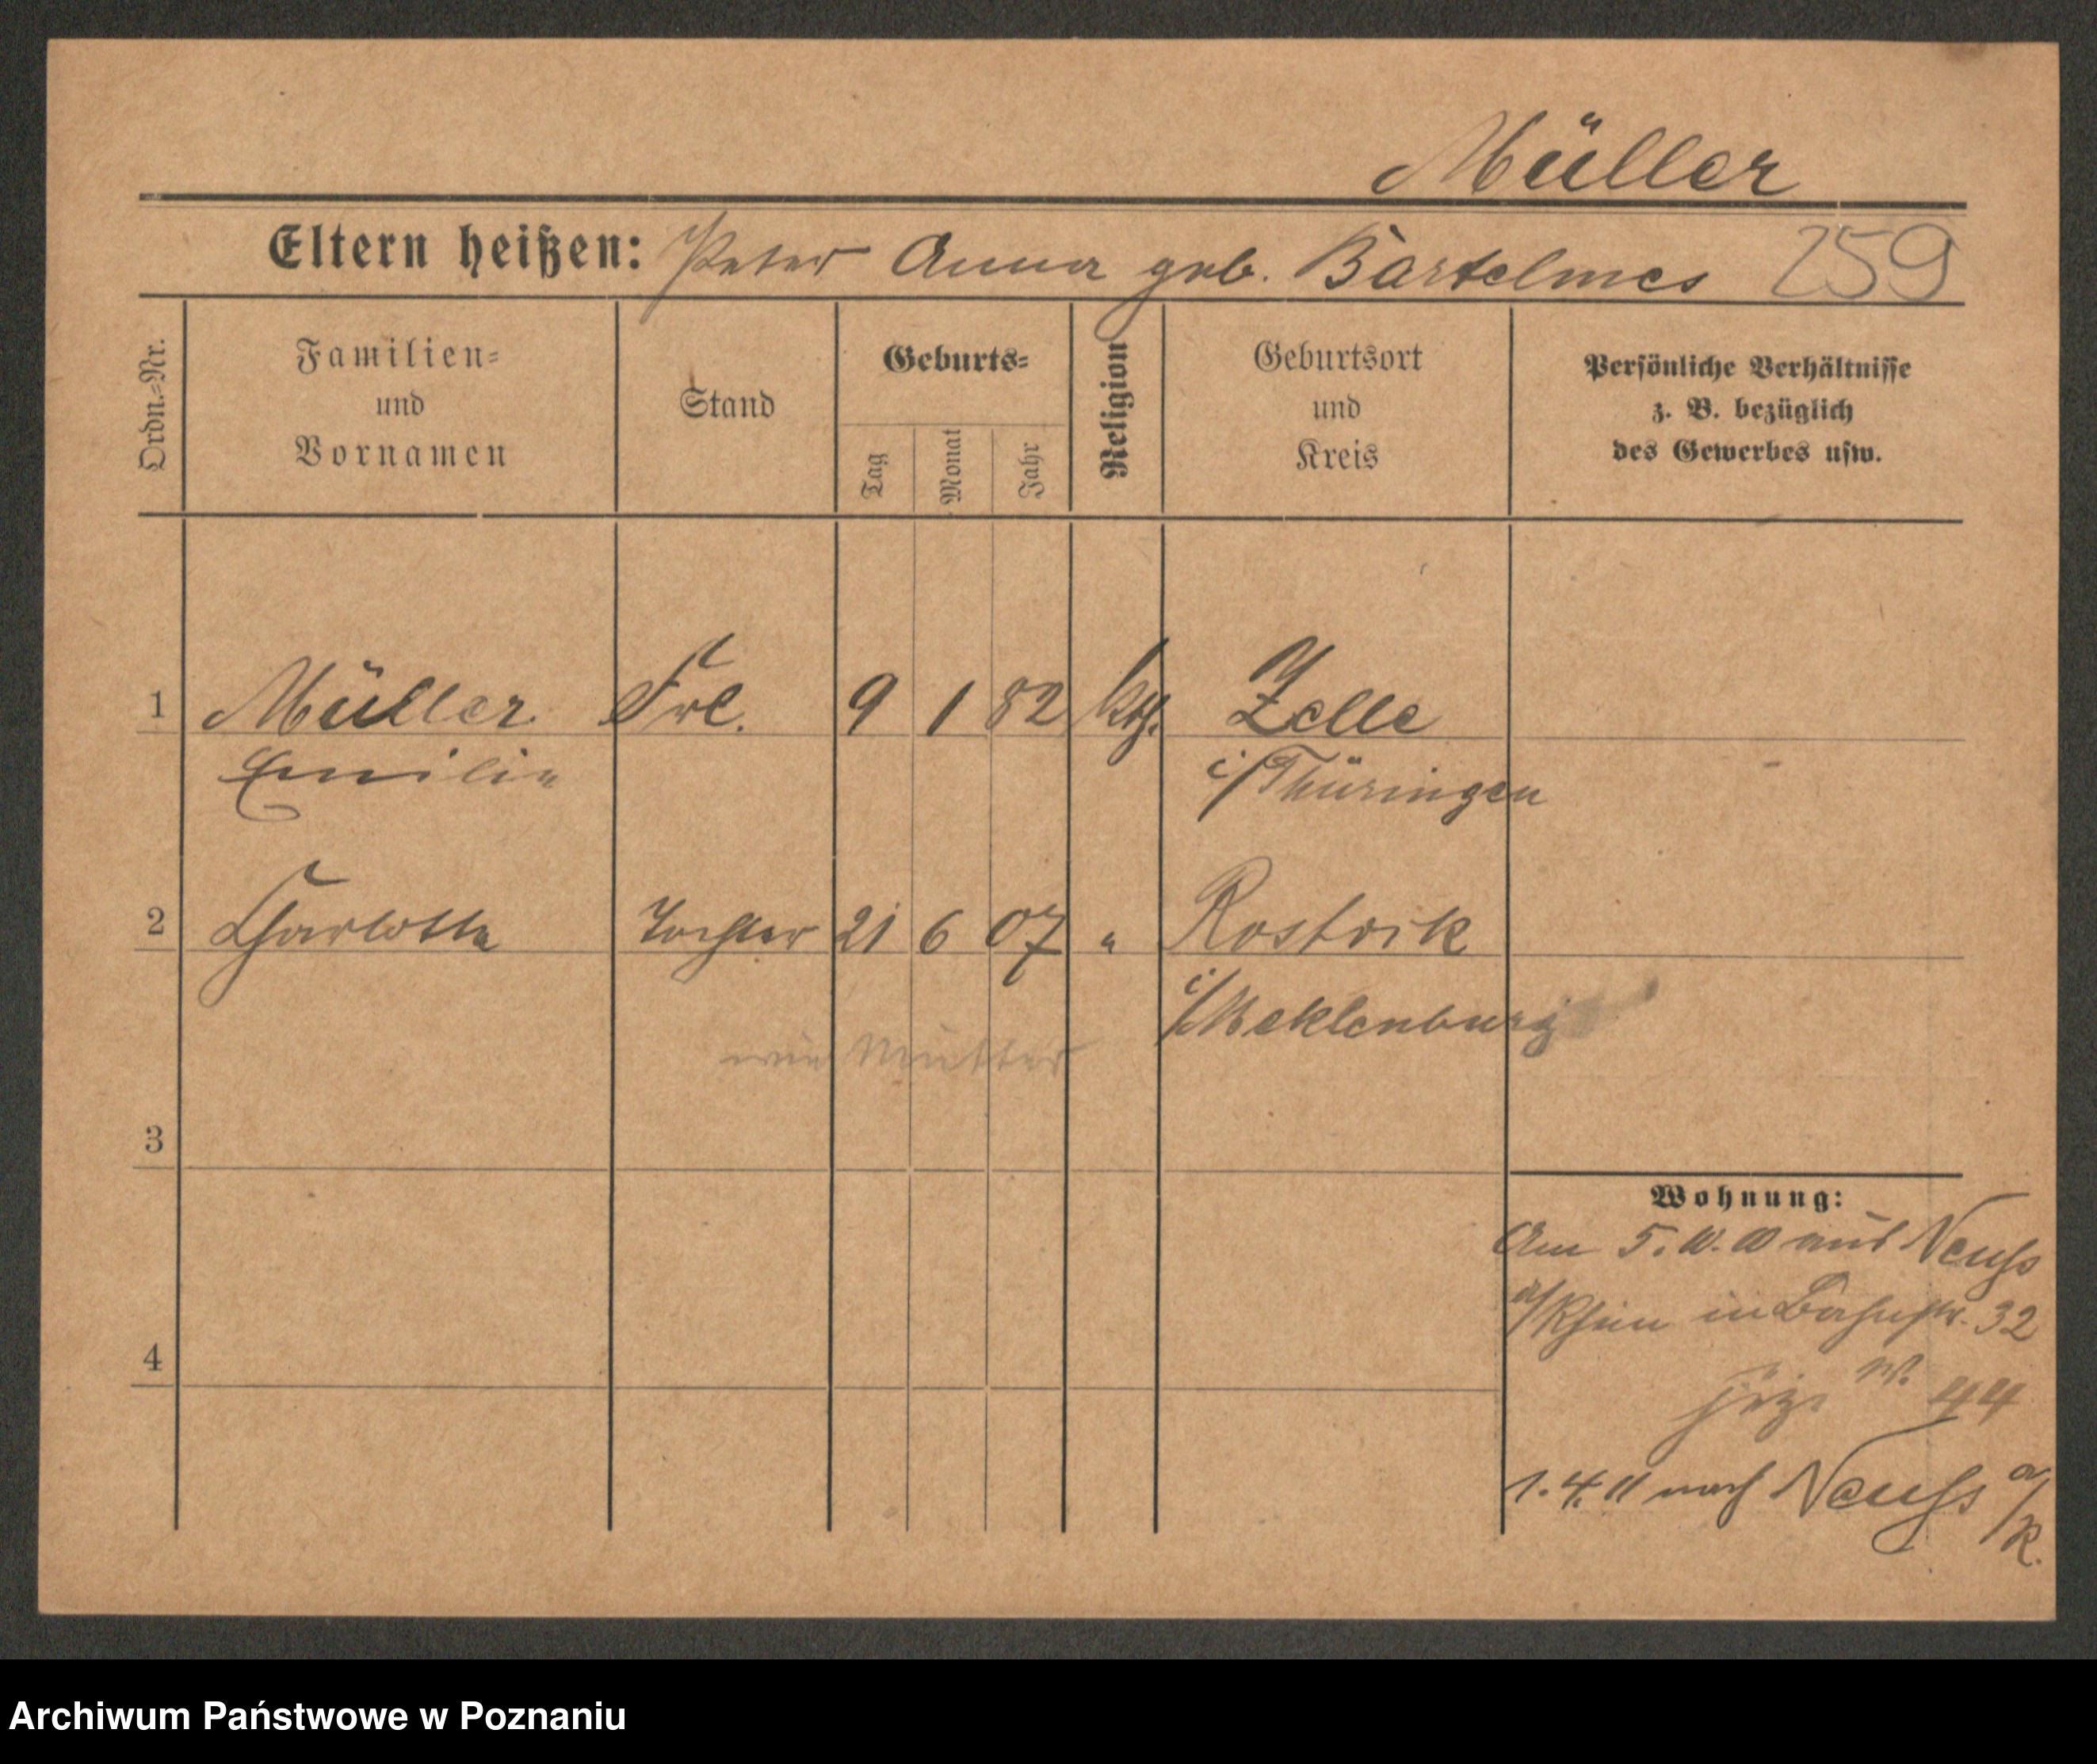 Müller
Eltern heißen: Peter Anna geb. Bartelmes 259
Ordn.-Nr.
Familien-
und
Vornamen
Stand
Geburts-
Tag
Monat
Jahr
Religion
Geburtsort
und
Kreis
Persönliche Verhältnisse
z. B. bezüglich
des Gewerbes usw.
1 Müller Frl. 9 1 82 kth. Zelle
Emilie i/Thüringen
2 Charlotte Tochter 21 6 07 " Rostock
i/Meklenburg
wie Mutter
3
Wohnung:
Am 5. 10. 10 aus Neuss
a/Rhein in Bahnstr. 32
4
44
1. 4. 11 nach Neuss a/R.
Archiwum Państwowe w Poznaniu